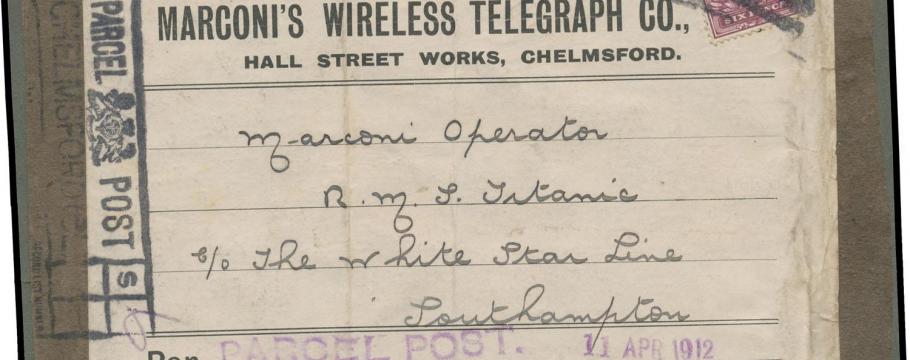 MARCONI'S WIRELESS TELEGRAPH CO.,
HALL STREET WORKS, CHELMSFORD.
SIXPENCE
PARCEL POST
S
Marconi Operator
R.M.S. Titanic
c/o The White Star Line
Southampton
Per PARCEL POST. 11 APR 1912